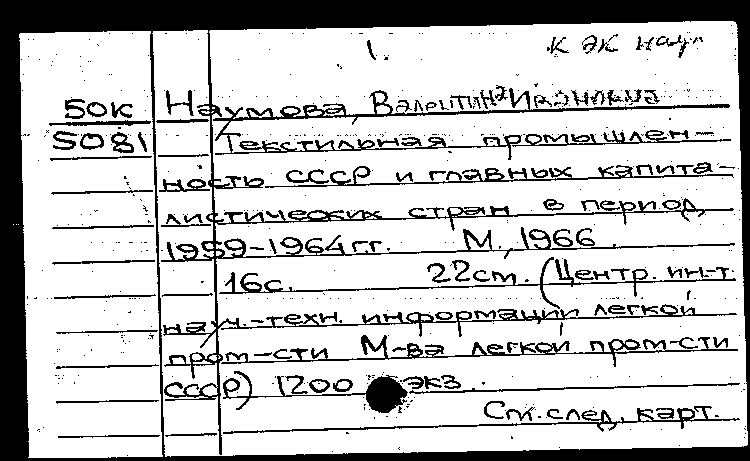 1.
к эк наук
50к Наумова, Валентина Ивановна
5081 Текстильная промышлен-
ность СССР и главных капита-
листических стран в период
1959-1964 г.г. М., 1966.
16с. 22cm. (Центр. ин-т
науч.-техн. информации легкой
пром-сти М-ва легкой пром-сти
СССР) 1200 экз.
См. след. карт.